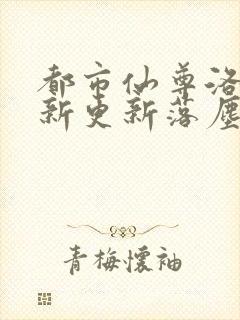 都市仙尊洛
新更新落塵
青梅懷袖